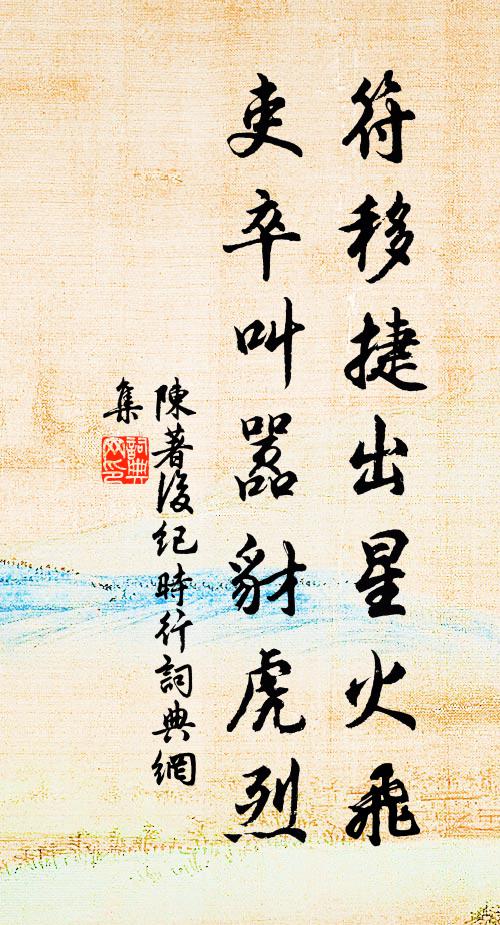 符移捷出星火飛
吏卒叫囂豺虎烈
陳著後纪時行詞典網
集
詞典
网印